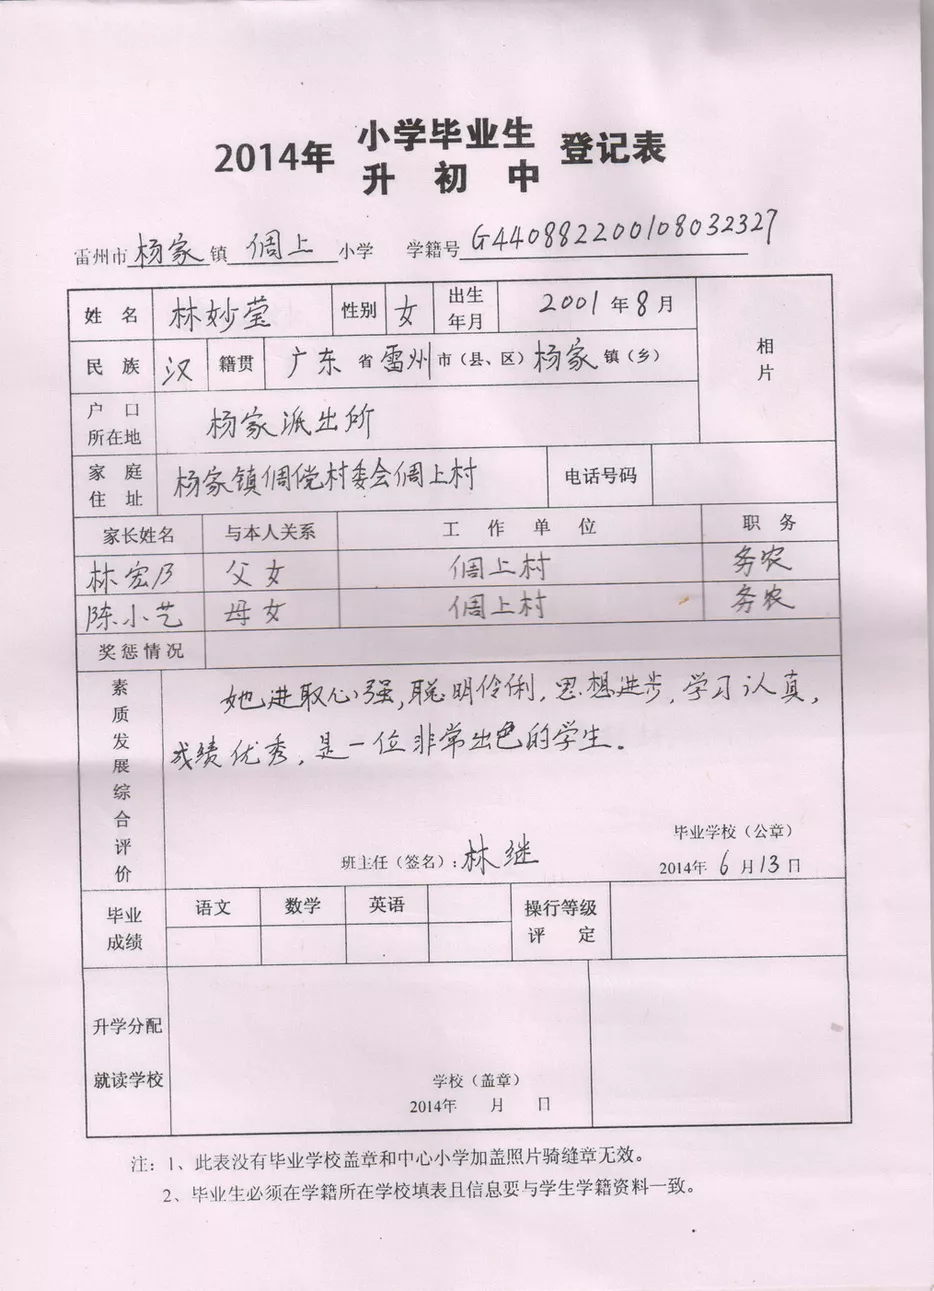 2014年 小学毕业生升初中 登记表
雷州市杨家镇倜上小学 学籍号G440882200108032327
姓名 林妙莹 性别 女 出生年月 2001年8月 相片
民族 汉 籍贯 广东省雷州市(县、区)杨家镇(乡)
户口所在地 杨家派出所
家庭住址 杨家镇倜傥村委会倜上村 电话号码
家长姓名 与本人关系 工作单位 职务
林宏乃 父女 倜上村 务农
陈小艺 母女 倜上村 务农
奖惩情况
素质发展综合评价
她进取心强,聪明伶俐,思想进步,学习认真,
成绩优秀,是一位非常出色的学生.
毕业学校(公章)
班主任(签名):林继 2014年6月13日
毕业成绩 语文 数学 英语 操行等级评定
升学分配
就读学校
学校(盖章)
2014年 月 日
注:1、此表没有毕业学校盖章和中心小学加盖照片骑缝章无效。
2、毕业生必须在学籍所在学校填表且信息要与学生学籍资料一致。